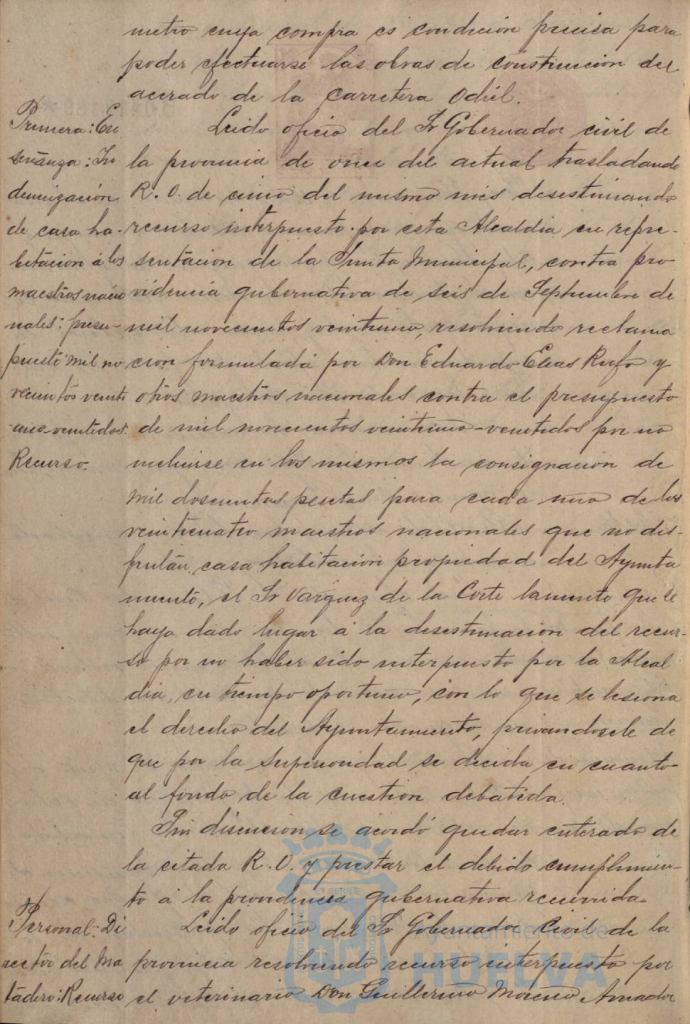 metro cuya compra es condición precisa para
poder efectuarse las obras de construcción del
acerado de la carretera Odiel.
Primera: En
señanza: In
demnización
de casa ha-
bitacion á los
maestros nacio
nales: presu-
puesto mil no
vecientos veinti
uno-veintidos.
Recurso.
Leido oficio del Sr Gobernador civil de
la provincia de once del actual trasladando
R. O. de cinco del mismo mes desestimando
recurso interpuesto por esta Alcaldia en repre-
sentación de la Junta Municipal, contra pro
videncia gubernativa de seis de Septiembre de
mil novecientos veintiuno, resolviendo reclama
ción formulada por Don Eduardo Elias Rufo y
otros maestros nacionales contra el presupuesto
de mil novecientos veintiuno-veintidos por no
incluirse en los mismos la consignación de
mil doscientas pesetas para cada uno de los
veinticuatro maestros nacionales que no dis-
frutan casa habitación propiedad del Ayunta
miento, el Sr Vazquez de la Corte lamentó que se
haya dado lugar á la desestimación del recur-
so por no haber sido interpuesto por la Alcal
dia, en tiempo oportuno, con lo que se lesiona
el derecho del Ayuntamiento, privandosele de
que por la Superioridad se decida en cuanto
al fondo de la cuestion debatida.
Sin discusion se acordó quedar enterado de
la citada R. O. y prestar el debido cumplimien-
to á la providencia gubernativa recurrida.
Personal: Di
rector del Ma
tadero: Recurso
Leido oficio del Sr Gobernador Civil de la
provincia resolviendo recurso interpuesto por
el veterinario Don Guillermo Moreno Amador
Ayuntamiento de
HUELVA